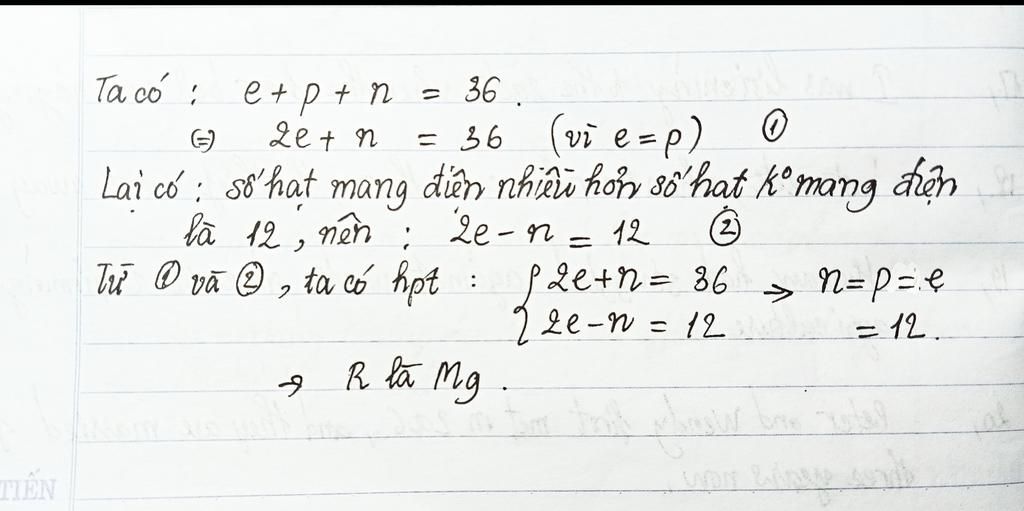 Ta có : e + p + n = 36 .
(=) 2e + n = 36 (vì e = p) ①
Lại có : số hạt mang điện nhiều hơn số hạt ko mang điện
là 12 , nên : 2e - n = 12 ②
Từ ① và ② , ta có hpt : { 2e + n = 36 → n = p = e
2e - n = 12 = 12.
→ R là Mg .
TIẾN